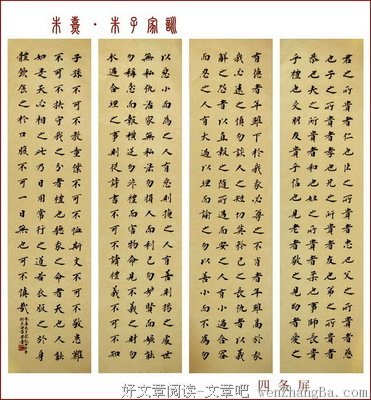 朱熹·朱子家訓
君之所貴者仁也臣之所貴者忠也父之所貴者慈
也子之所貴者孝也兄之所貴者友也弟之所貴者
恭也夫之所貴者和也婦之所貴者柔也事師長貴
乎禮也交朋友貴乎信也見老者敬之見幼者愛之
有德者年雖下於我我必尊之不肖者年雖高於我
我必遠之慎勿談人之短切莫矜己之長仇者以義
解之怨者以直報之隨所遇而安之人有小過含容
而忍之人有大過以理而諭之勿以善小而不為勿
以惡小而為之人有惡則掩之人有善則揚之處世
無私仇治家無私法勿損人而利己勿妒賢而嫉能
勿稱忿而報橫逆勿非禮而害物命見不義之財勿
取遇合理之事則從詩書不可不讀禮義不可不知
子孫不可不教童僕不可不恤斯文不可不敬患難
不可不扶守我之分者禮也聽我之命者天也人能
如是天必相之此乃日用常行之道若衣服之於身
體飲食之於口腹不可一日無也可不慎哉
四条屏
好文章阅读-文章吧 wenzhangba.com